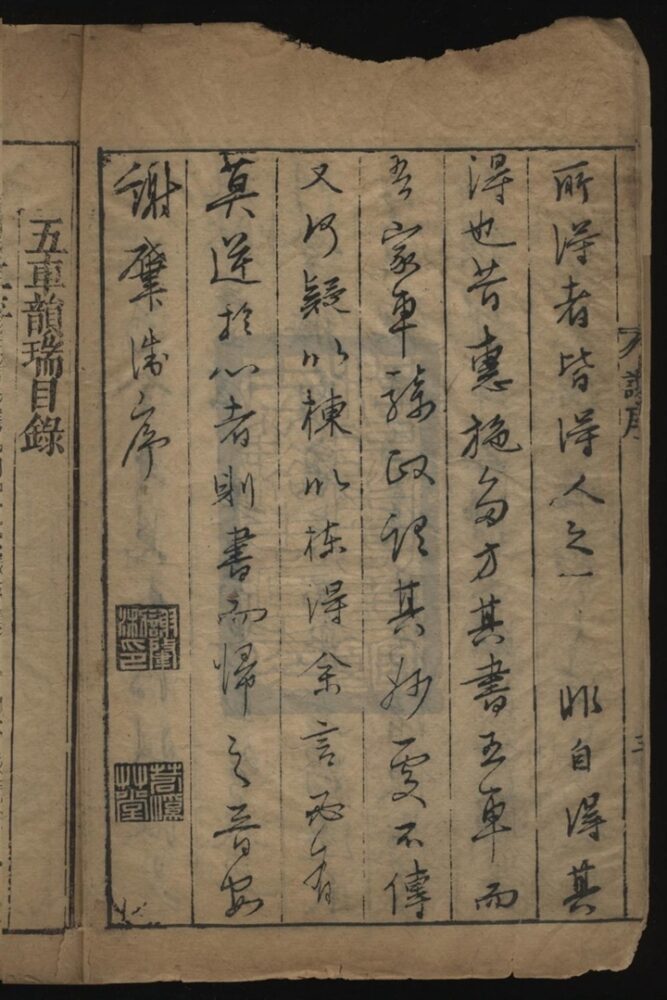 所得者皆得人之 非自得其
得也昔惠施多方其書五車而
吾家車騎政謂其妙處不傳
又何疑以棟以棟得余言而有
莫逆於心者則書而歸之晉安
謝肇淛序
謝肇淛印
五車韻瑞目錄